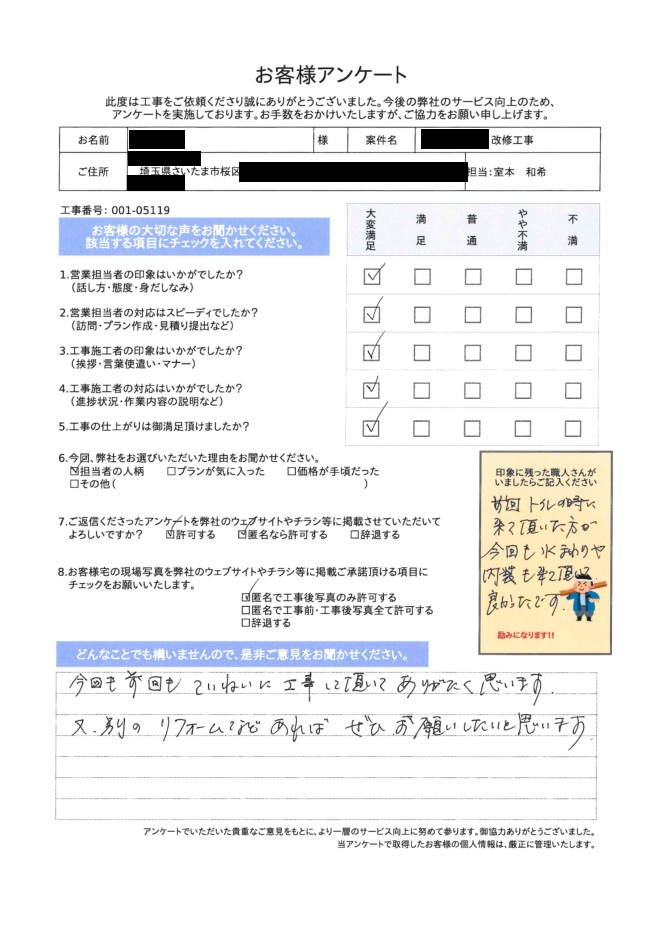 お客様アンケート
此度は工事をご依頼くださり誠にありがとうございました。今後の弊社のサービス向上のため、
アンケートを実施しております。お手数をおかけいたしますが、ご協力をお願い申し上げます。
お名前 様 案件名 改修工事
ご住所 埼玉県さいたま市桜区 担当：室本 和希
工事番号: 001-05119
お客様の大切な声をお聞かせください。
該当する項目にチェックを入れてください。
大変満足 満足 普通 やや不満 不満
1.営業担当者の印象はいかがでしたか？
（話し方・態度・身だしなみ）
2.営業担当者の対応はスピーディでしたか？
（訪問・プラン作成・見積り提出など）
3.工事施工者の印象はいかがでしたか？
（挨拶・言葉使遣い・マナー）
4.工事施工者の対応はいかがでしたか？
（進捗状況・作業内容の説明など）
5.工事の仕上がりは御満足頂けましたか？
6.今回、弊社をお選びいただいた理由をお聞かせください。
☑担当者の人柄 □プランが気に入った □価格が手頃だった
□その他（ ）
7.ご返信くださったアンケートを弊社のウェブサイトやチラシ等に掲載させていただいて
よろしいですか？ ☑許可する ☑匿名なら許可する □辞退する
8.お客様宅の現場写真を弊社のウェブサイトやチラシ等に掲載ご承諾頂ける項目に
チェックをお願いいたします。
☑匿名で工事後写真のみ許可する
□匿名で工事前・工事後写真全て許可する
□辞退する
印象に残った職人さんが
いましたらご記入ください
前回トイレの時に
来て頂いた方が
今回も水まわりや
内装も来て頂いて
良かったです。
励みになります!!
どんなことでも構いませんので、是非ご意見をお聞かせください。
今回も前回もていねいに工事して頂いてありがたく思います。
又、別のリフォームなどあればぜひお願いしたいと思います。
アンケートでいただいた貴重なご意見をもとに、より一層のサービス向上に努めて参ります。御協力ありがとうございました。
当アンケートで取得したお客様の個人情報は、厳正に管理いたします。